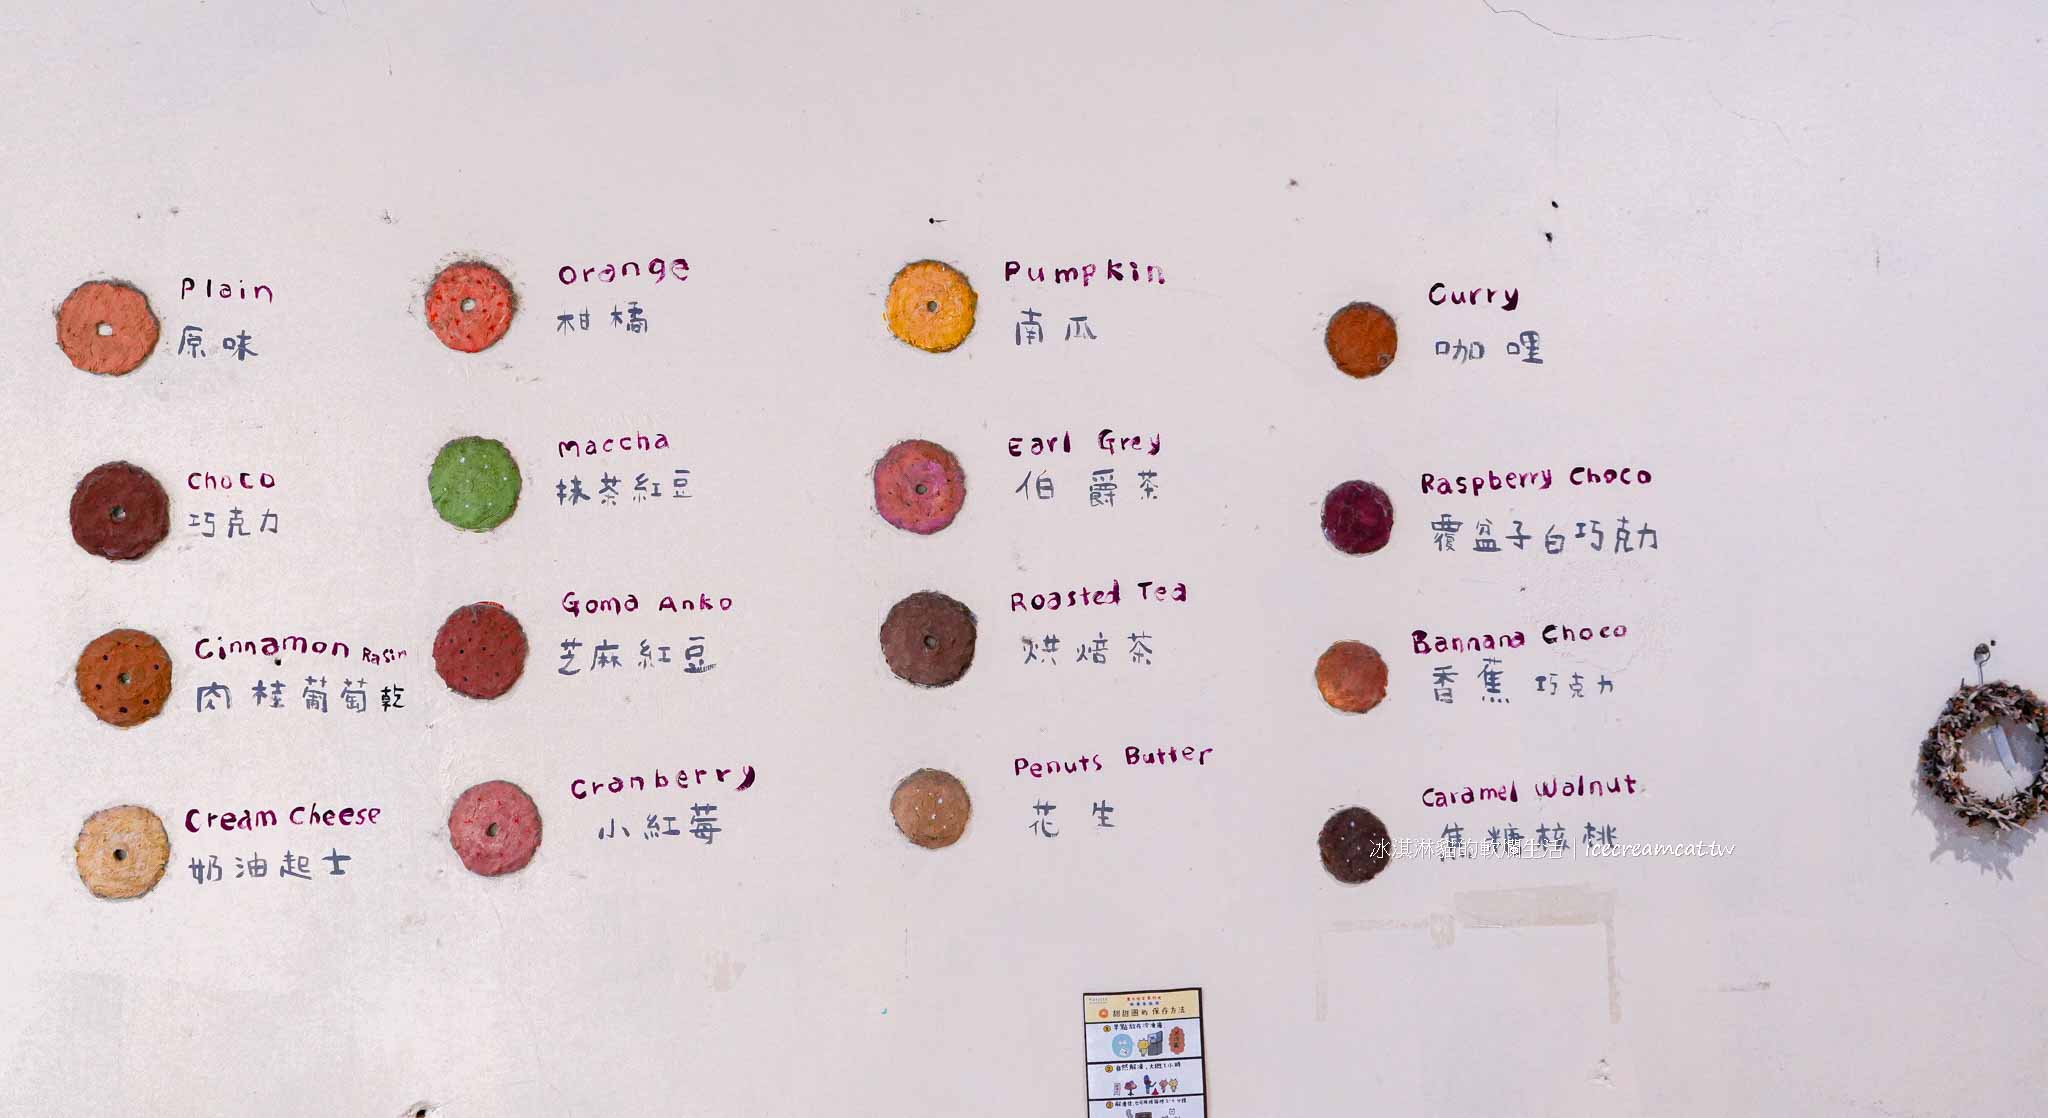 Plain
原味
Choco
巧克力
Cinnamon Rasin
肉桂葡萄乾
Cream Cheese
奶油起士
Orange
柑橘
Maccha
抹茶紅豆
Goma Anko
芝麻紅豆
Cranberry
小紅莓
Pumpkin
南瓜
Earl Grey
伯爵茶
Roasted Tea
烘焙茶
Penuts Butter
花生
Curry
咖哩
Raspberry Choco
覆盆子白巧克力
Bannana Choco
香蕉巧克力
Caramel Walnut
焦糖核桃
冰淇淋貓的軟爛生活 | icecreamcat.tw
甜甜圈的保存方法
1 早點放在冷凍庫
2 自然解凍,大概1小時